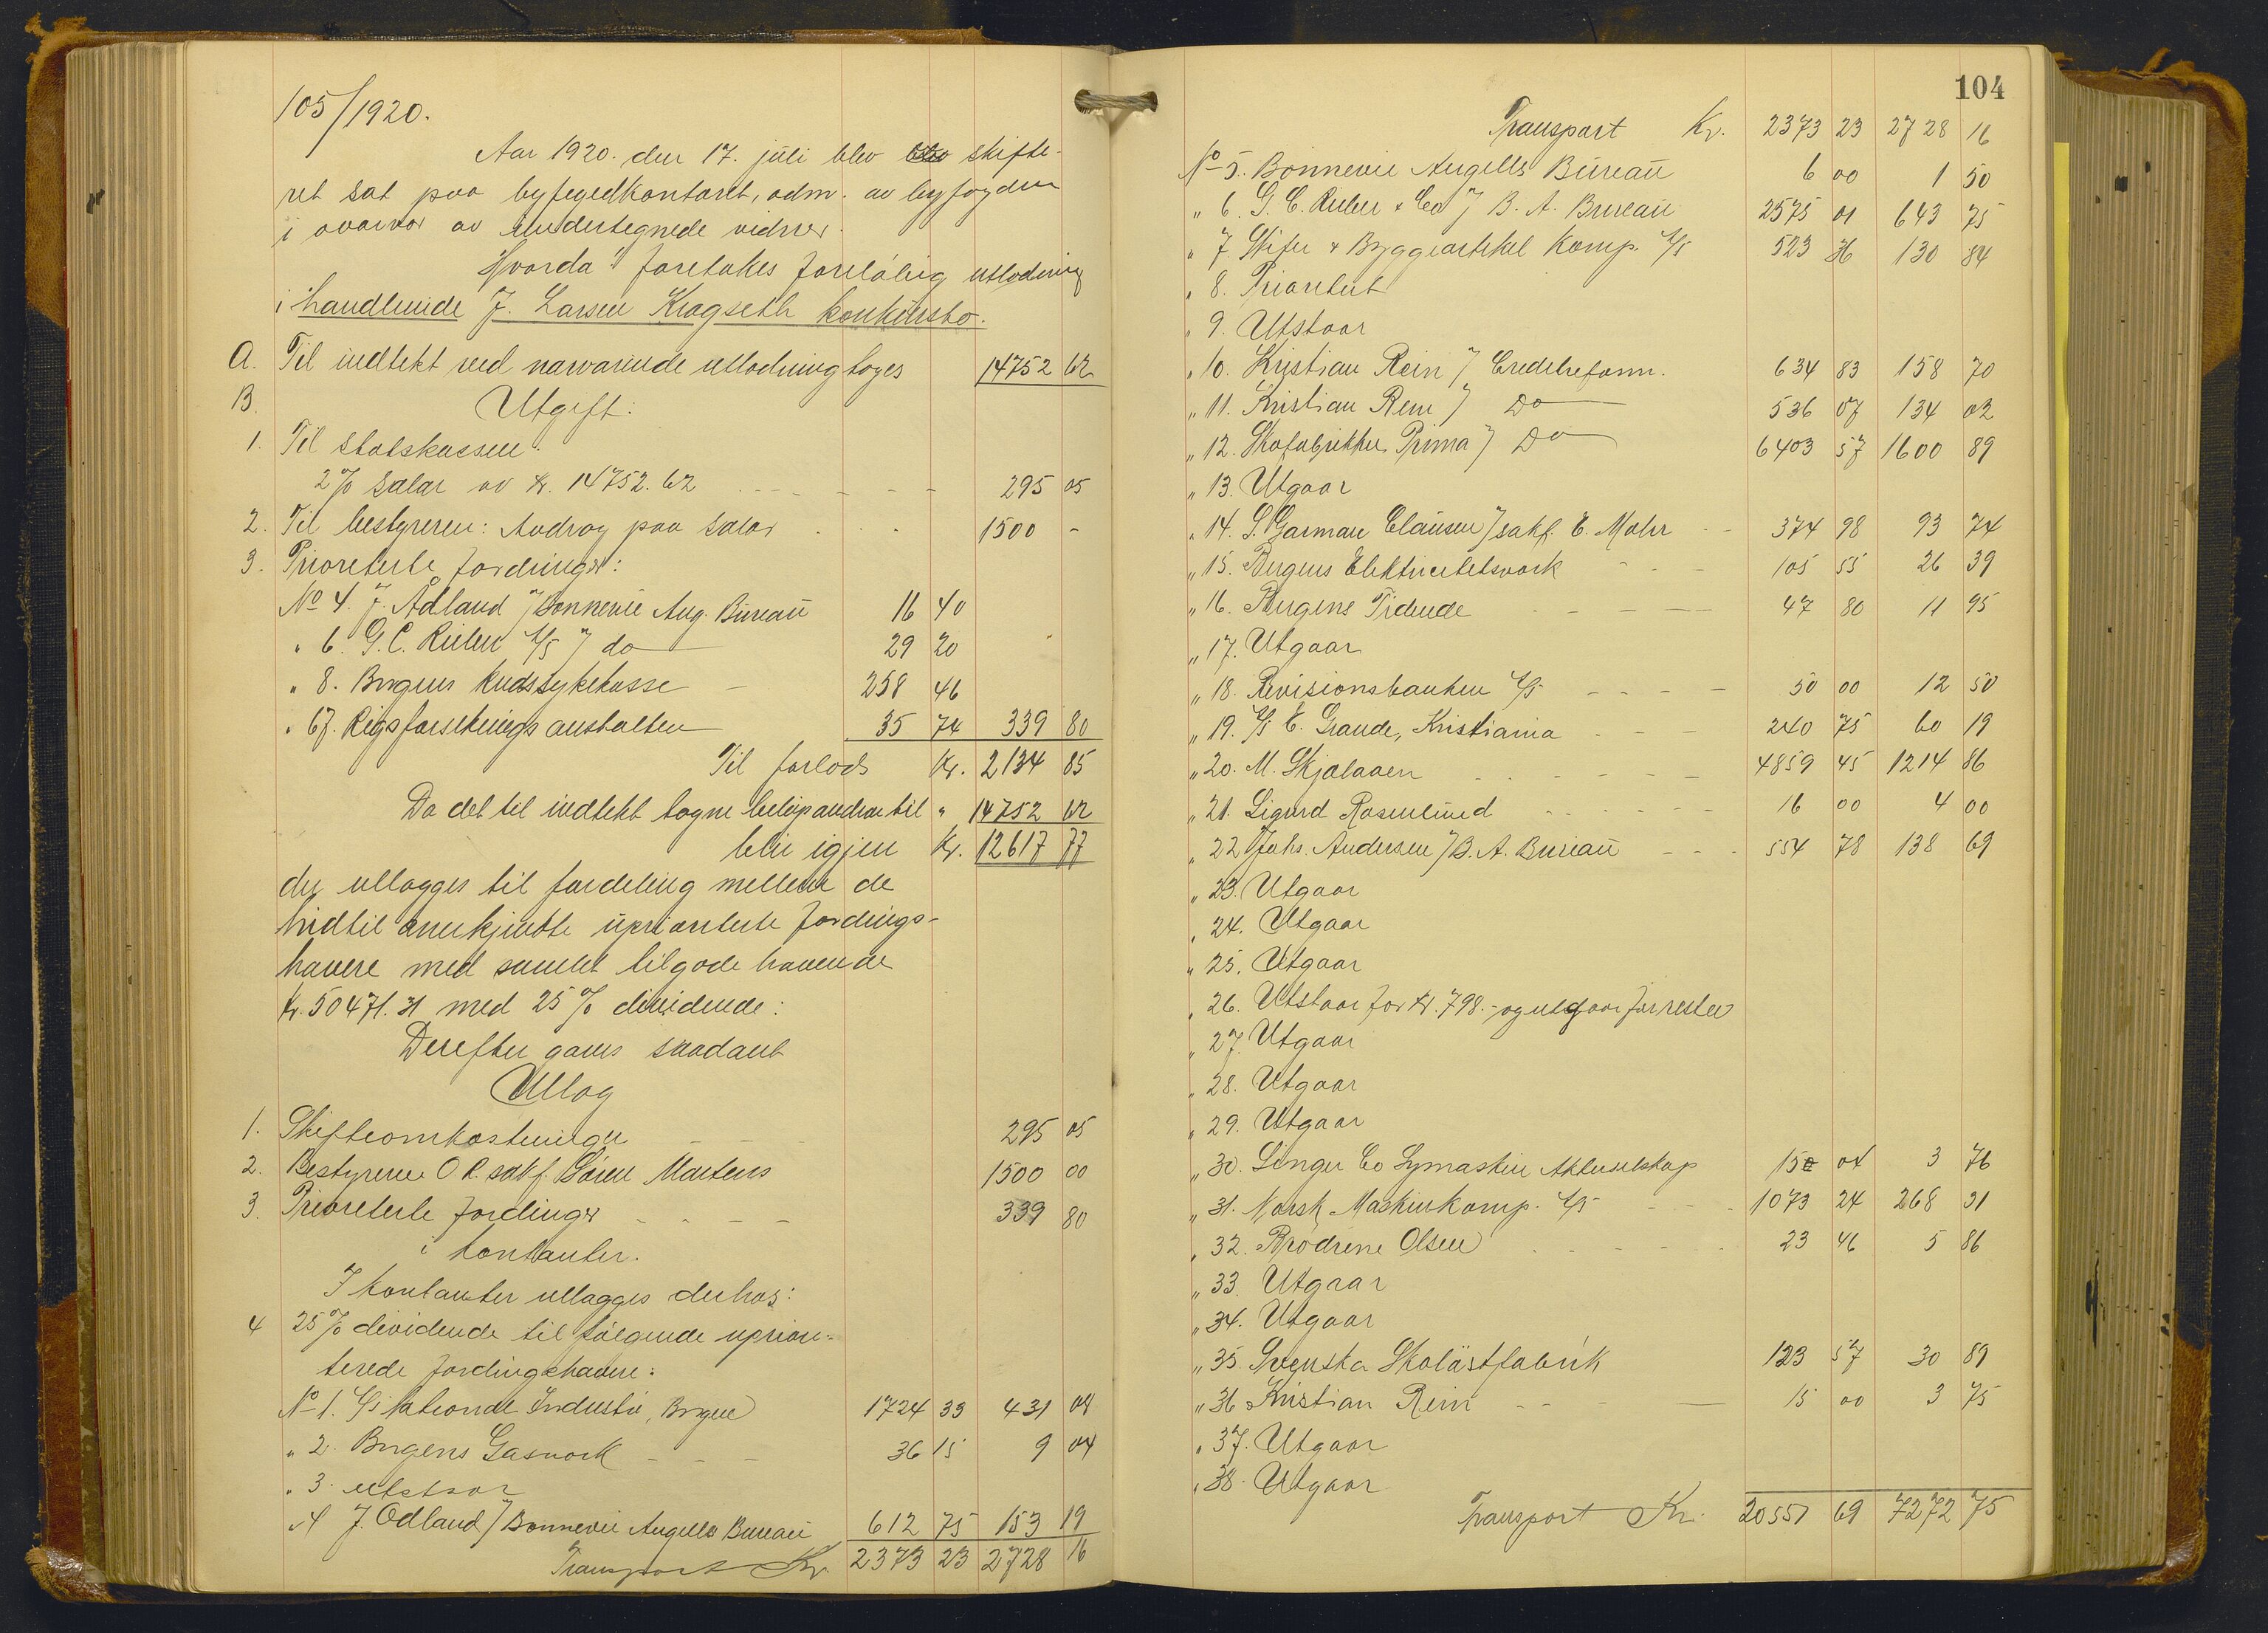 105/1920.
Aar 1920. den 17. juli blev skifte-
ret sat paa byfogedkontoret, adm. av byfogden
i overvær av undertegnede vidner.
Hvorda foretokes foreløbig utlodning
i handlende J. Larsen Kragseth konkursbo.
A. Til indtekt ved nærværende utlodning toges 14752 62
B. Utgift:
1. Til statskassen:
2% salær av kr. 14752.62 - - - - - 295 05
2. Til bestyreren: Avdrag paa salær . . . 1500 -
3. Prioriterte fordringer:
No 4. J. Ådland / Bonnevie Ang. Büreau 16 40
" 6. G. C. Rieber A/S / do 29 20
" 8. Bergens kredssykekasse - 258 46
" 67. Rigsforsikringsanstalten 35 74 339 80
Til forlods Kr. 2134 85
Da det til indtekt tagne beløp andrar til " 14752 62
blir igjen Kr. 12617 77
der utlægges til fordeling mellem de
hidtil anerkjendte uprioriterte fordrings-
havere med samlet tilgodehavende
kr. 50471.31 med 25% dividende:
Derefter gaves saadant
Utlæg
1. Skifteomkostninger - - - 295 05
2. Bestyreren O.R. sakf. Sören Martens 1500 00
3. Prioriterte fordringer - - - - 339 80
i kontanter.
I kontanter utlægges derhos:
4 25% dividende til følgende uprior-
terede fordringshavere:
No 1. A/S National Industri, Bergen 1724 33 431 08
" 2. Bergens Gasverk - - - 36 15 9 04
" 3. utstaar
" 4 J. Odland / Bonnevie Angells Bureau 612 75 153 19
Transport Kr. 2373 23 2728 16
104
Transport Kr. 2373 23 2728 16
No 5. Bonnevie Angells Büreau 6 00 1 50
" 6. G. C. Rieber & Co / B. A. Bureau 2575 01 643 75
" 7 Skifer & Byggeartikel Komp. A/S 523 36 130 84
" 8. Prioritert
" 9. Utstaar
" 10. Kristian Rein / Creditreform. 634 83 158 70
" 11. Kristian Rein / Do 536 07 134 02
" 12. Skofabrikken Prima / Do 6403 57 1600 89
" 13. Utgaar
" 14. S. Garman Clausen / sakf. E. Mohr - - 374 98 93 74
" 15. Bergens Elektricitetsverk - - - 105 55 26 39
" 16. Bergens Tidende - - - - 47 80 11 95
" 17. Utgaar
" 18. Revisionsbanken A/S - - - - 50 00 12 50
" 19. A/S E. Grande, Kristiania - - - 240 75 60 19
" 20. M. Skjalaaen - - - - - - 4859 45 1214 86
" 21. Sigurd Rosenlund - - - - - 16 00 4 00
" 22 Johs. Andersen / B. A. Bureau - - - 554 78 138 69
" 23. Utgaar
" 24. Utgaar
" 25. Utgaar
" 26. Utstaar for kr. 798.- og utgaar for resten
" 27. Utgaar
" 28. Utgaar
" 29. Utgaar
" 30. Singer Co Symaskin Aktieselskap 15 04 3 76
" 31. Norsk Maskinkomp. A/S - - - 1073 24 268 31
" 32. Brødrene Olsen - - - - - 23 46 5 86
" 33. Utgaar
" 34. Utgaar
" 35. Svenska Skolästfabrik 123 57 30 89
" 36 Kristian Rein - - - - 15 00 3 75
" 37. Utgaar
" 38. Utgaar
Transport Kr. 20551 69 7272 75